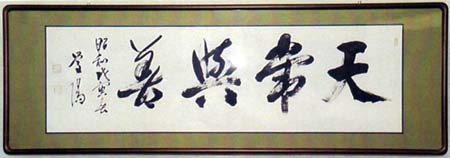 天常與善
昭和戊寅春